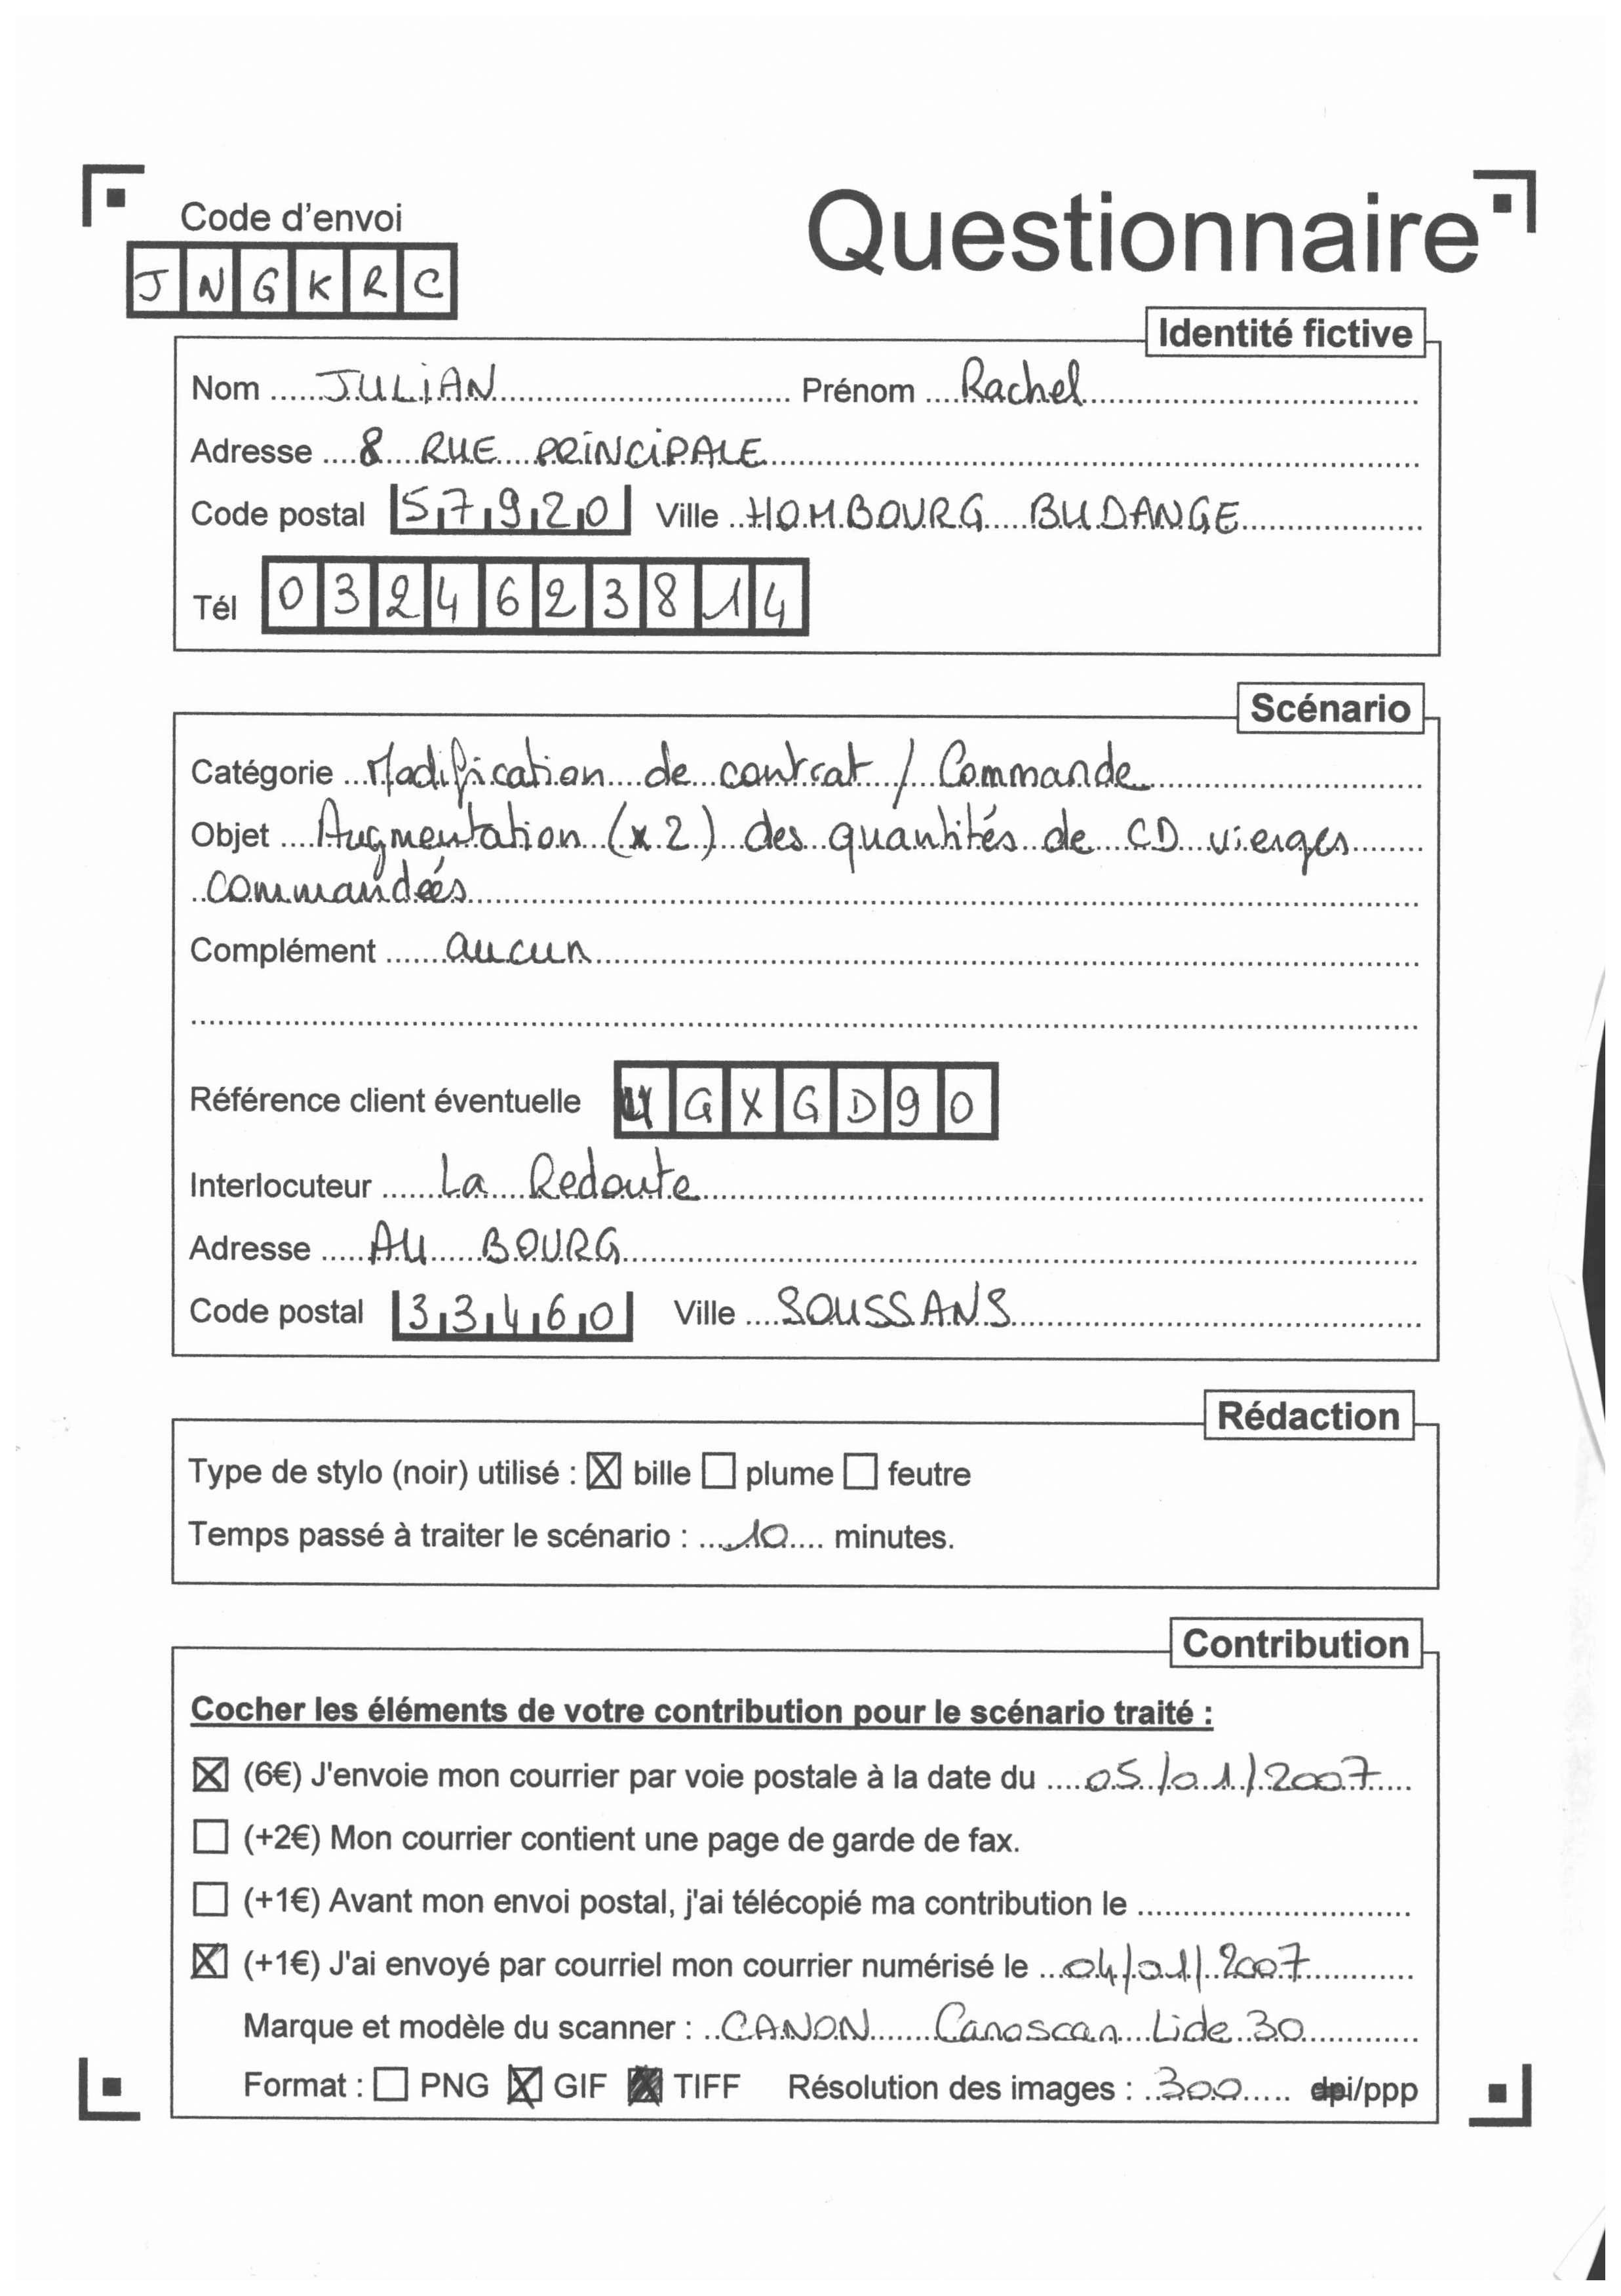 Code d'envoi
JNGKRC
Questionnaire
Identité fictive
Nom JULIAN Prénom Rachel
Adresse 8 RUE PRINCIPALE
Code postal 57920 Ville HOMBOURG BUDANGE
Tél 0324623814
Scénario
Catégorie Modification de contrat / Commande
Objet Augmentation (x2) des quantités de CD vierges
commandées
Complément aucun
Référence client éventuelle UGXGD90
Interlocuteur La Redoute
Adresse AU BOURG
Code postal 33460 Ville SOUSSANS
Rédaction
Type de stylo (noir) utilisé : ☒ bille ☐ plume ☐ feutre
Temps passé à traiter le scénario : 10 minutes.
Contribution
Cocher les éléments de votre contribution pour le scénario traité :
☒ (6€) J'envoie mon courrier par voie postale à la date du 05/01/2007
☐ (+2€) Mon courrier contient une page de garde de fax.
☐ (+1€) Avant mon envoi postal, j'ai télécopié ma contribution le
☒ (+1€) J'ai envoyé par courriel mon courrier numérisé le 04/01/2007
Marque et modèle du scanner : CANON Canoscan Lide 30
Format : ☐ PNG ☒ GIF ☒ TIFF Résolution des images : 300 dpi/ppp